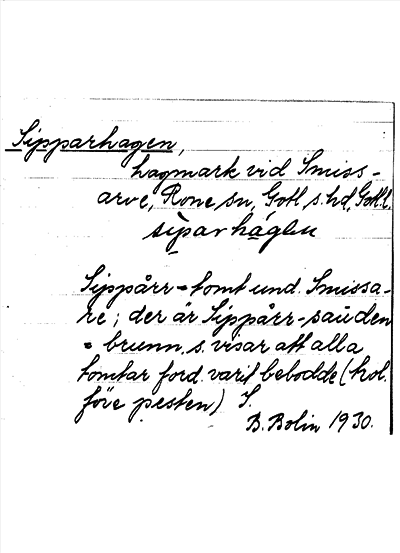 Sipparhagen,
hagmark vid Smiss-
arve, Rone sn, Gotl. s. hd, Gotl. l.
sìparhágen
Sippårr-tomt und. Smissa-
re; der är Sippårr-sauden
= brunn, s. visar att alla
tomtar ford. varit bebodde (hol.
före pesten) S.
B. Bolin 1930.